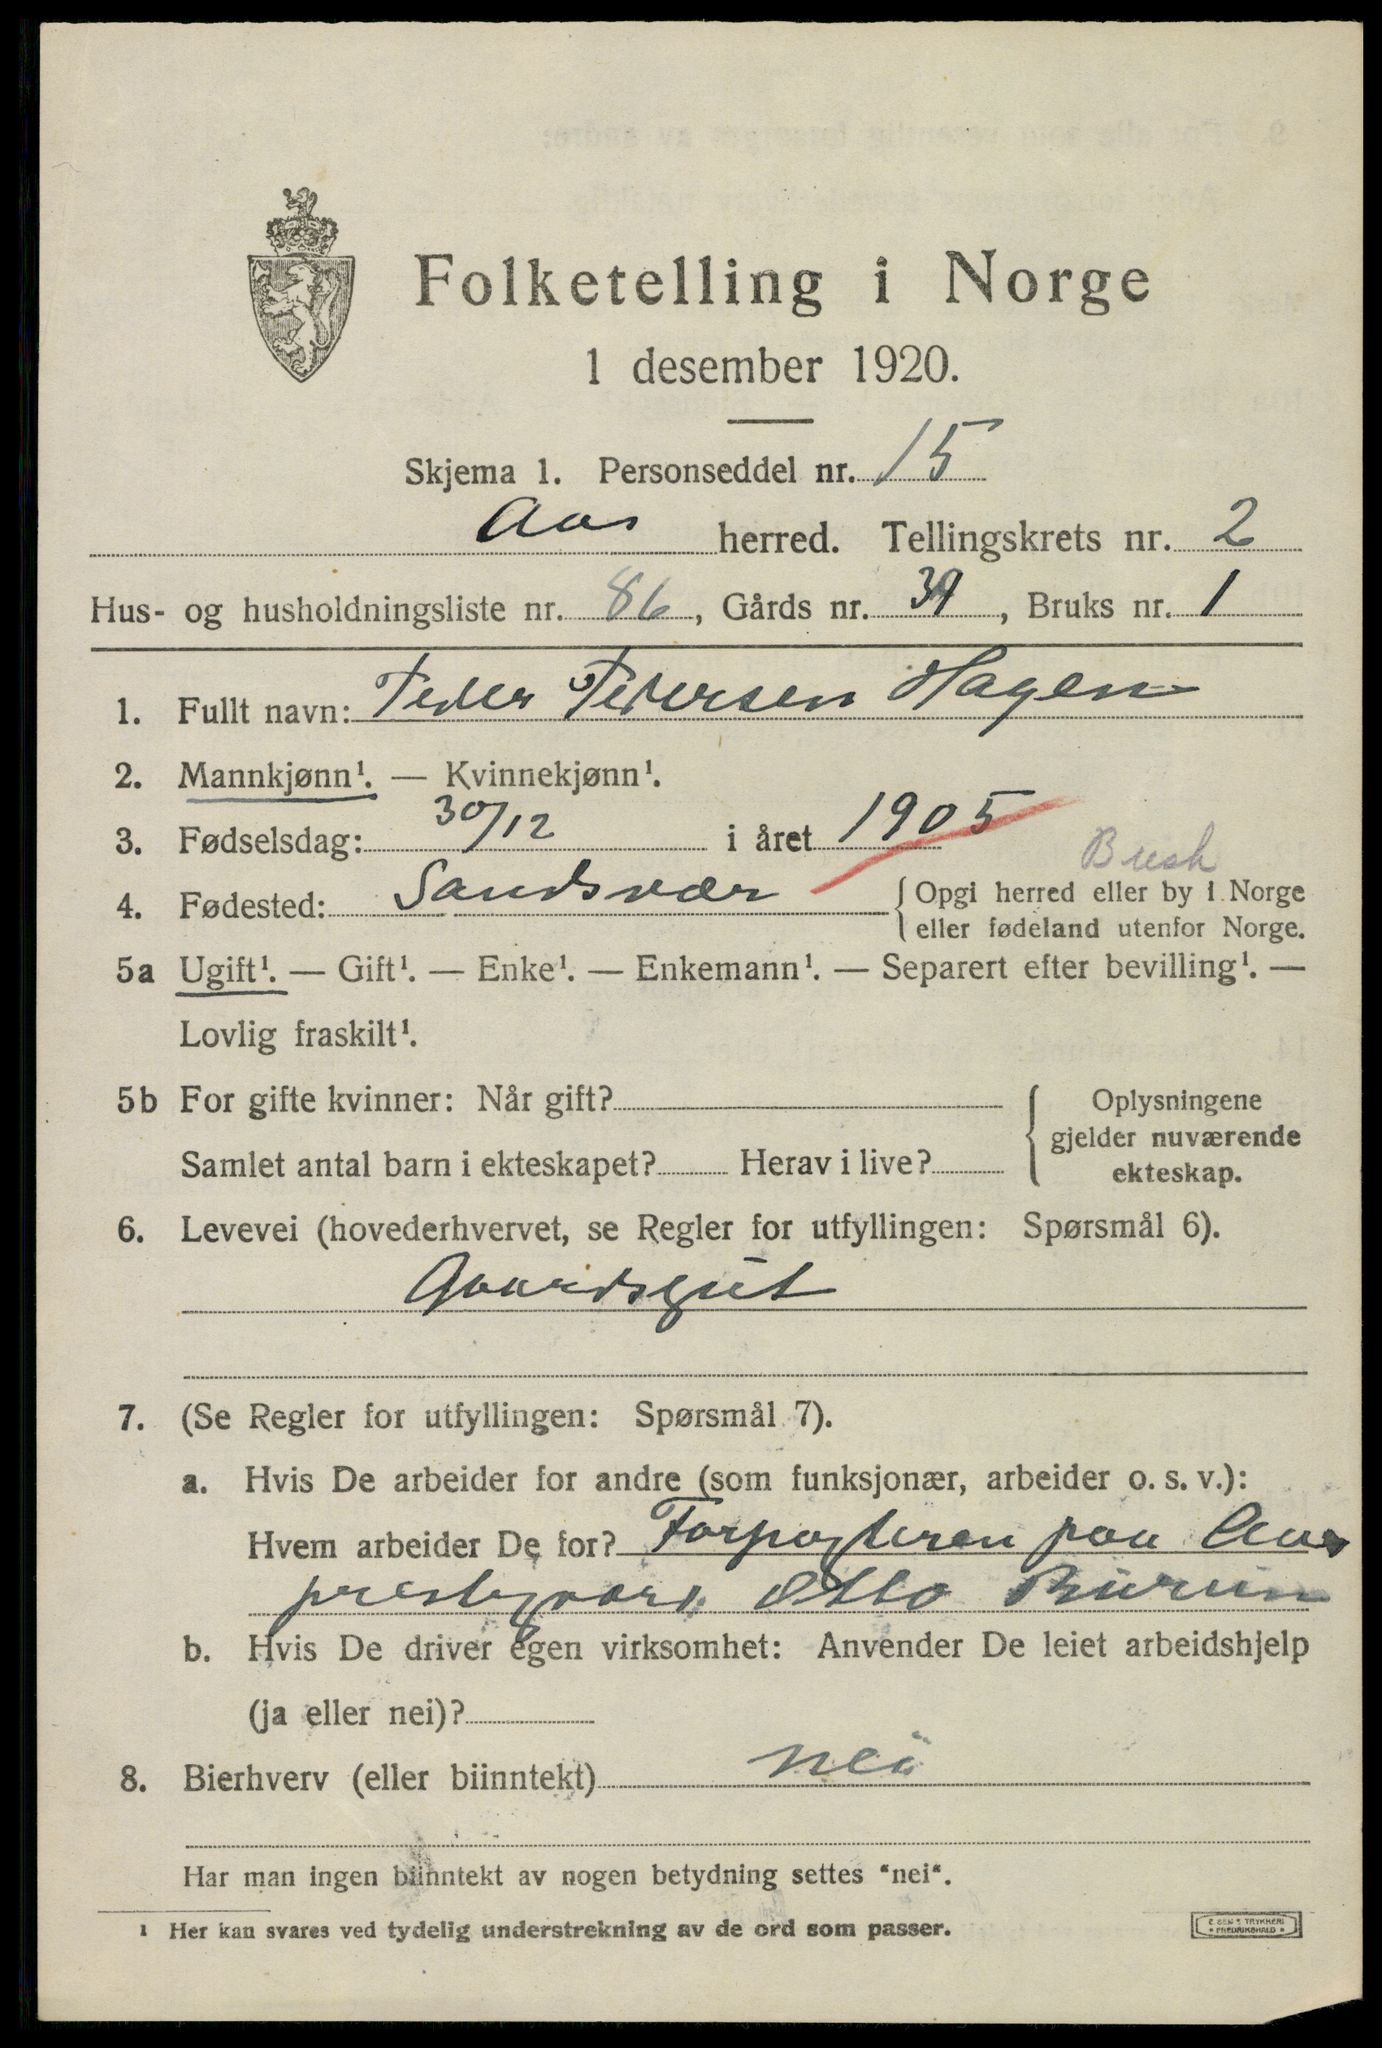 Folketelling i Norge
1 desember 1920.
Skjema 1. Personseddel nr. 15
Aas herred. Tellingskrets nr. 2
Hus- og husholdningsliste nr. 86, Gårds nr. 39, Bruks nr. 1
1. Fullt navn: Peder Pedersen Hagen
2. Mannkjønn¹. — Kvinnekjønn¹.
3. Fødselsdag: 30/12 i året 1905
Busk
4. Fødested: Sandsvær { Opgi herred eller by i Norge
eller fødeland utenfor Norge.
5a Ugift¹. — Gift¹. — Enke¹. — Enkemann¹. — Separert efter bevilling¹. —
Lovlig fraskilt¹.
5b For gifte kvinner: Når gift?
Samlet antal barn i ekteskapet? Herav i live?
Oplysningene
gjelder nuværende
ekteskap.
6. Levevei (hovederhvervet, se Regler for utfyllingen: Spørsmål 6).
Gaardsgut
7. (Se Regler for utfyllingen: Spørsmål 7).
a. Hvis De arbeider for andre (som funksjonær, arbeider o. s. v.):
Hvem arbeider De for? Forpagteren paa Aas
prestegaard. Otto
b. Hvis De driver egen virksomhet: Anvender De leiet arbeidshjelp
(ja eller nei)?
8. Bierhverv (eller biinntekt) nei
Har man ingen biinntekt av nogen betydning settes "nei".
¹ Her kan svares ved tydelig understrekning av de ord som passer.
E. SEM'S TRYKKERI
* FREDRIKSHALD *